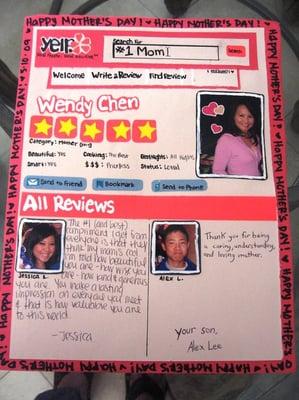 HAPPY MOTHER'S DAY! ♥ HAPPY MOTHER'S DAY! ♥ HAPPY MOTHER'S DAY!
5-10-09
yelp
Search for
#1 Mom
Search
Welcome Write a Review Find Review
Wendy Chen
Category: Mother
Beautiful: Yes Cooking: The Best
Smart: Yes $$$: Priceless Status: Loved
Send to Friend Bookmark Send to Phone
All Reviews
The #1 (and best)
compliment I get from
everyone is that they
think my mom's cool.
I'm told how beautiful
you are - how nice you
are - how kind & generous
you are. You make a lasting
impression on everyone you meet
& that is how valuable you are
to this world.
-Jessica
Jessica L.
Thank you for being
a caring, understanding,
and loving mother.
Alex L.
Your son,
Alex Lee